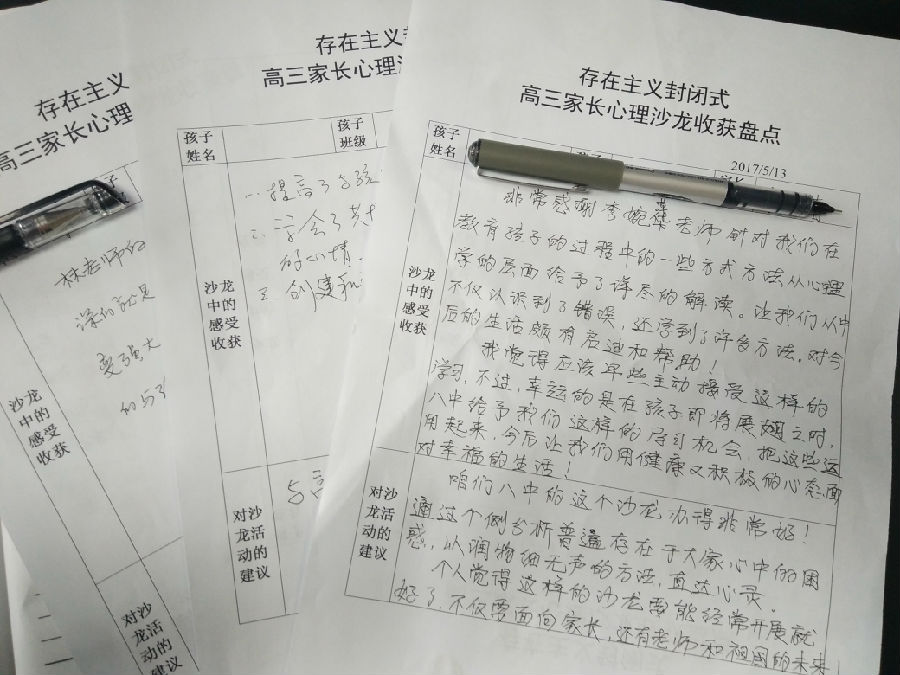 存在主义
高三家长心理
林老师的
课的就是
变强大
沙龙
中的
感受
收获
对沙
龙活
动的
建议
存在主义
高三家长心理沙
孩子
姓名
孩子
班级
一、提高了与孩
二、学会了
的心情
三、创建和
沙龙
中的
感受
收获
对沙
龙活
动的
建议
存在主义封闭式
高三家长心理沙龙收获盘点
2017/5/13
孩子
姓名
沙龙
中的
感受
收获
非常感谢李婉老师针对我们在
教育孩子的过程中的一些方式方法从心理
学的层面给予了详尽的解读。让我们从中
不仅认识到了错误，还学到了许多方法，对今
后的生活颇有启迪和帮助！
我觉得应该早些主动接受这样的
学习，不过，幸运的是在孩子即将展翅之时，
八中给予我们这样的机会，把这些运
用起来，今后让我们用健康又积极的心态面
对幸福的生活！
对沙
龙活
动的
建议
咱们八中的这个沙龙办得非常好！
通过个例分析普遍存在于大家心中的困
惑，以润物细无声的方法，直达心灵。
个人觉得这样的沙龙要能经常开展就
好了，不仅要面向家长，还有老师和祖国的未来